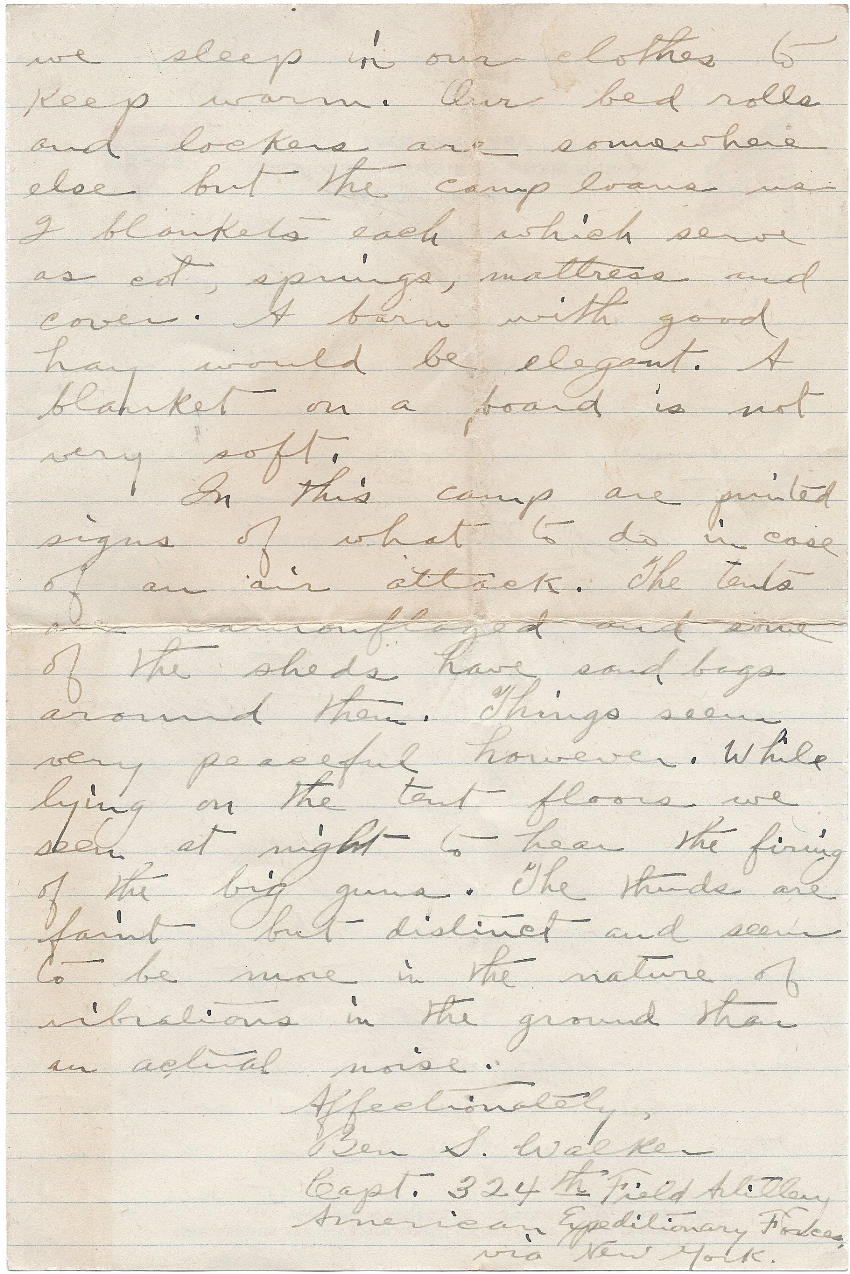 we sleep in our clothes to
keep warm. Our bed rolls
and lockers are somewhere
else but the camp loans us
2 blankets each which serve
as cot, springs, mattress and
cover. A barn with good
hay would be elegant. A
blanket on a board is not
very soft.
In this camp are printed
signs of what to do in case
of an air attack. The tents
are camouflaged and some
of the sheds have sand bags
around them. Things seem
very peaceful however. While
lying on the tent floors we
seem at night to hear the firing
of the big guns. The thuds are
faint but distinct and seem
to be more in the nature of
vibrations in the ground than
an actual noise.
Affectionately,
Ben S. Walker
Capt. 324th Field Artillery
American Expeditionary Forces,
via New York.